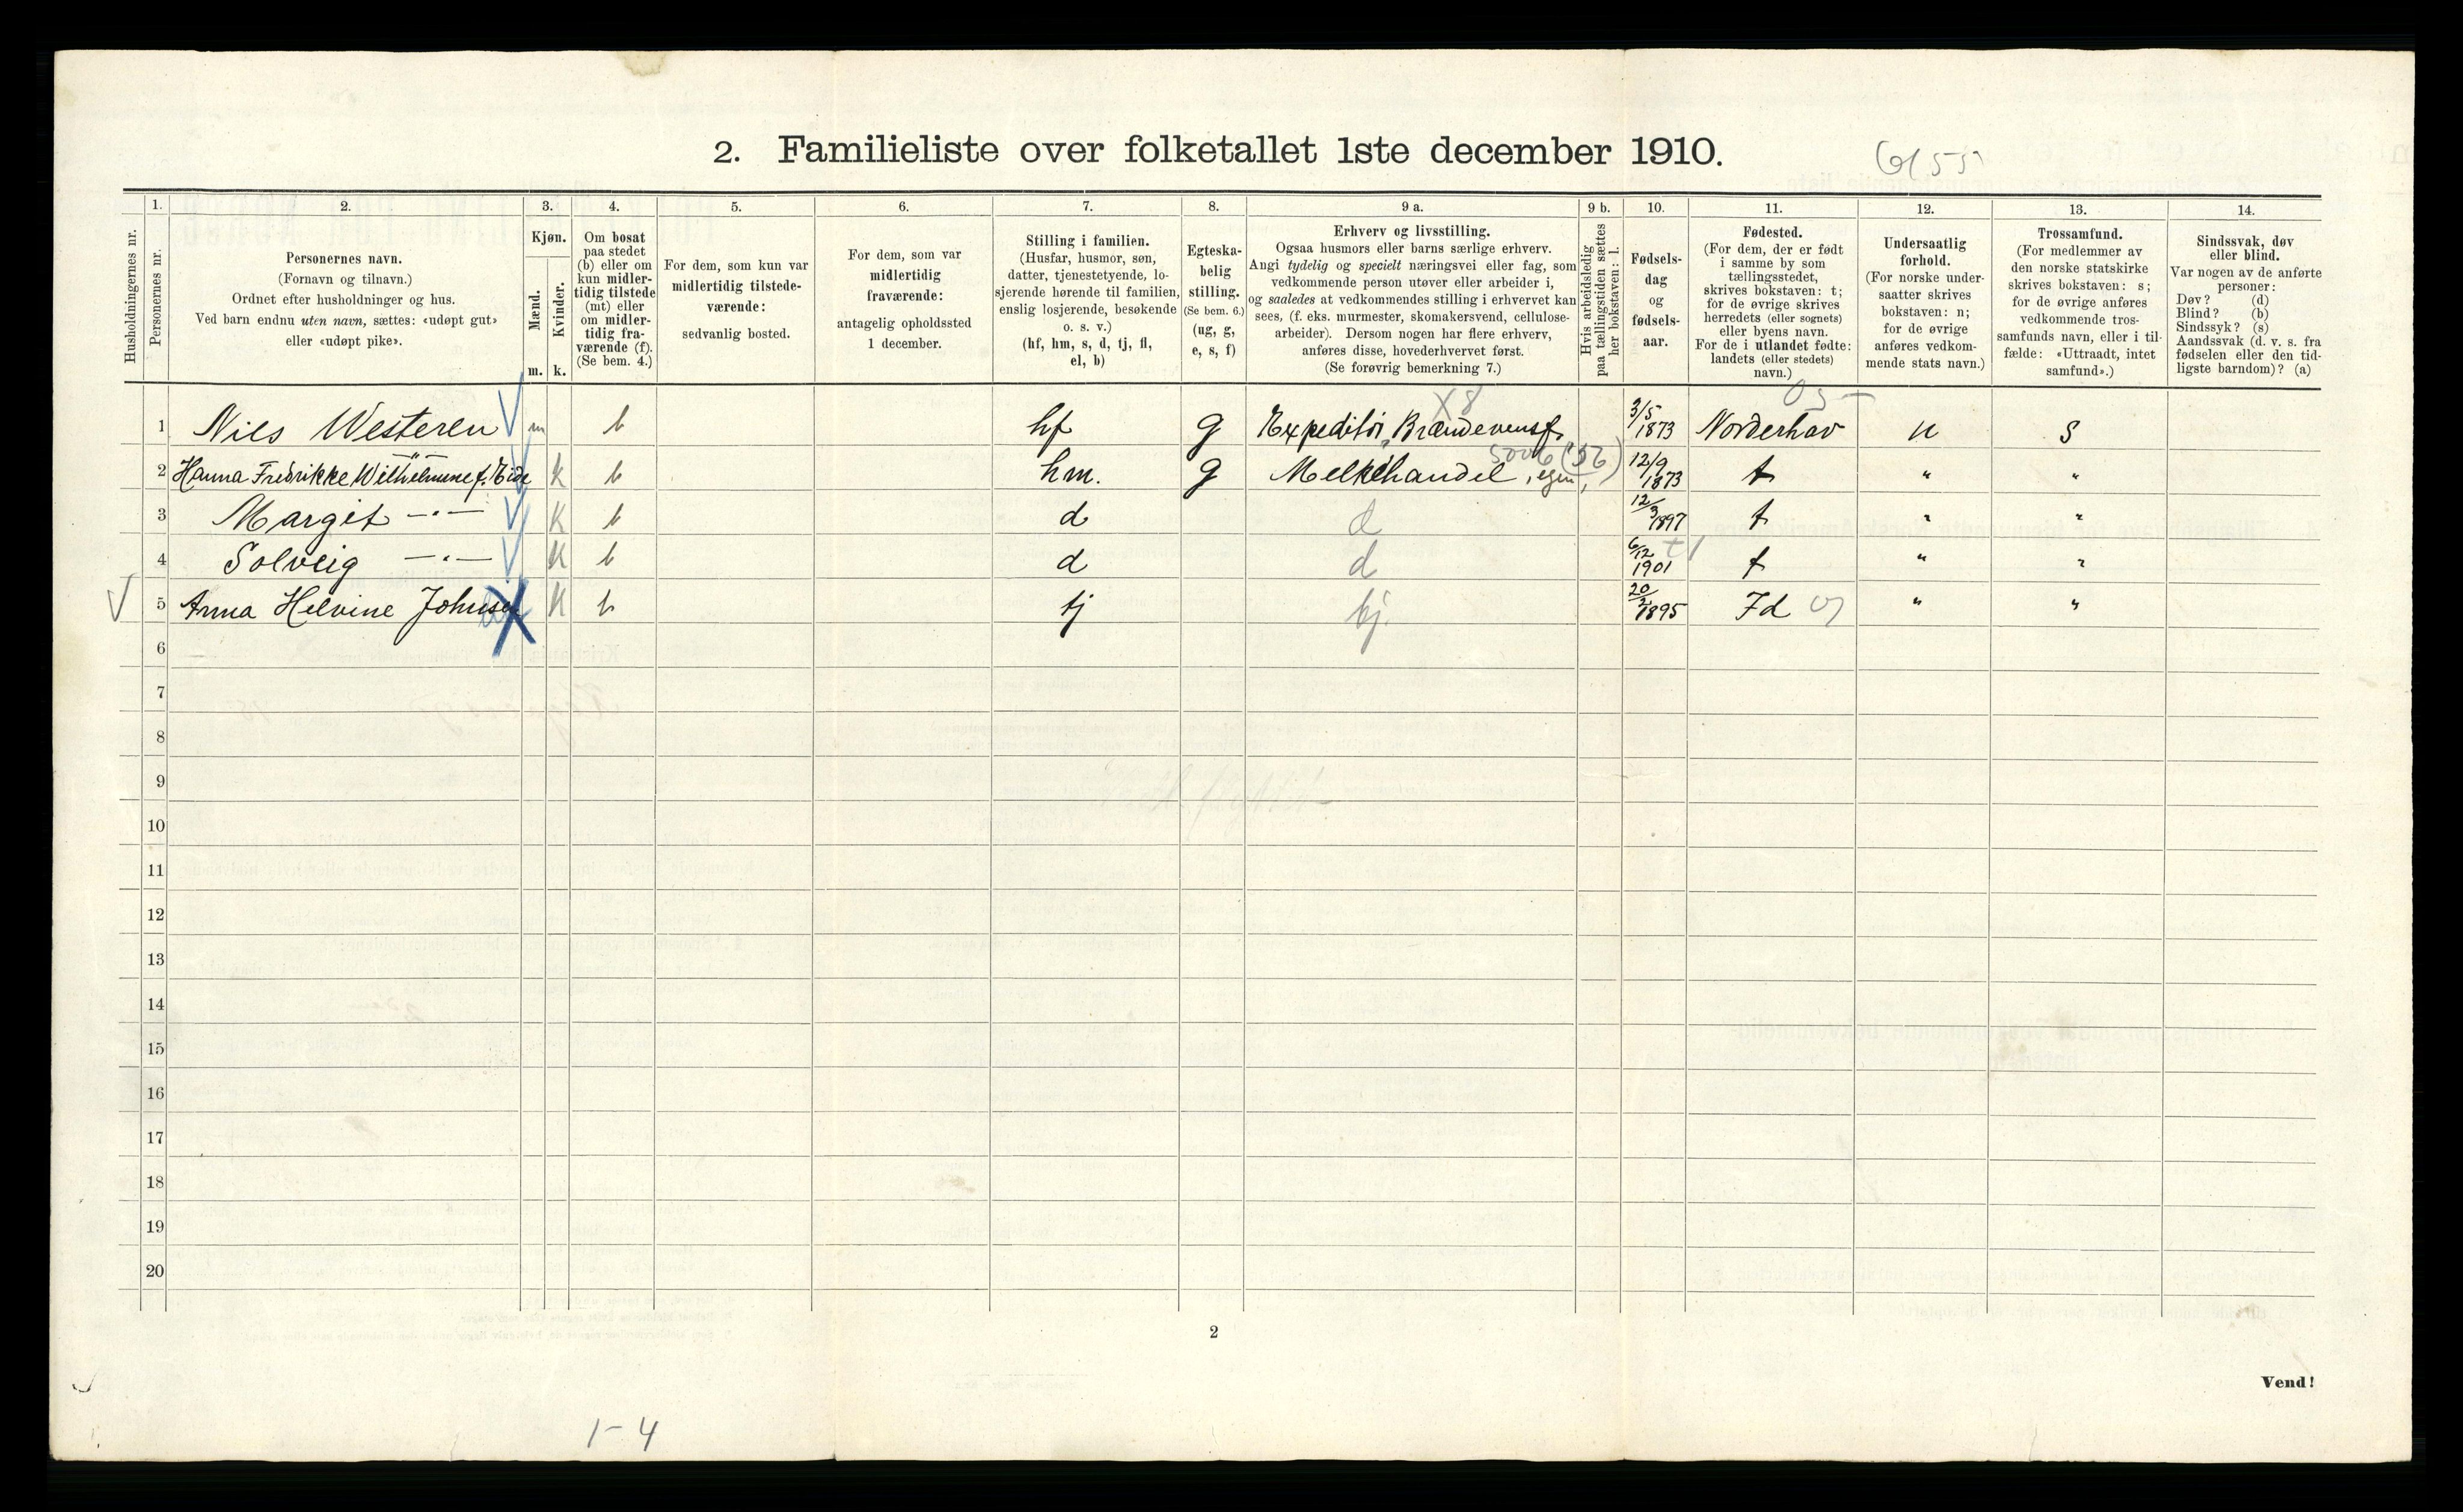 2. Familieliste over folketallet 1ste december 1910.
Husholdningernes nr.
1.
Personernes nr.
2.
Personernes navn.
(Fornavn og tilnavn.)
Ordnet efter husholdninger og hus.
Ved barn endnu uten navn, sættes: «udøpt gut»
eller «udøpt pike».
3.
Kjøn.
Mænd.
Kvinder.
m. k.
4.
Om bosat
paa stedet
(b) eller om
kun midler-
tidig tilstede
(mt) eller
om midler-
tidig fra-
værende (f).
(Se bem. 4.)
5.
For dem, som kun var
midlertidig tilstede-
værende:
sedvanlig bosted.
6.
For dem, som var
midlertidig
fraværende:
antagelig opholdssted
1 december.
7.
Stilling i familien.
(Husfar, husmor, søn,
datter, tjenestetyende, lo-
sjerende hørende til familien,
enslig losjerende, besøkende
o. s. v.)
(hf, hm, s, d, tj, fl,
el, b)
8.
Egteska-
belig
stilling.
(Se bem. 6.)
(ug, g,
e, s, f)
9 a.
Erhverv og livsstilling.
Ogsaa husmors eller barns særlige erhverv.
Angi tydelig og specielt næringsvei eller fag, som
vedkommende person utøver eller arbeider i,
og saaledes at vedkommendes stilling i erhvervet kan
sees, (f. eks. murmester, skomakersvend, cellulose-
arbeider). Dersom nogen har flere erhverv,
anføres disse, hovederhvervet først.
(Se forøvrig bemerkning 7.)
9 b.
Hvis arbeidsledig
paa tællingstiden sættes
her bokstaven: l.
10.
Fødsels-
dag
og
fødsels-
aar.
11.
Fødested.
(For dem, der er født
i samme by som
tællingsstedet,
skrives bokstaven: t;
for de øvrige skrives
herredets (eller sognets)
eller byens navn.
For de i utlandet fødte:
landets (eller stedets)
navn.)
12.
Undersaatlig
forhold.
(For norske under-
saatter skrives
bokstaven: n;
for de øvrige
anføres vedkom-
mende stats navn.)
13.
Trossamfund.
(For medlemmer av
den norske statskirke
skrives bokstaven: s;
for de øvrige anføres
vedkommende tros-
samfunds navn, eller i til-
fælde: «Uttraadt, intet
samfund».)
14.
Sindssvak, døv
eller blind.
Var nogen av de anførte
personer:
Døv? (d)
Blind? (b)
Sindssyk? (s)
Aandssvak (d. v. s. fra
fødselen eller den tid-
ligste barndom)? (a)
X8
1 Nils Westeren m b hf g Expeditør, Brændevinsf. 3/5 1873 Norderhov n s
2 Hanna Fredrikke Wilhelmine —"— f. Eide k b hm. g Melkehandel, egen, 12/9 1873 t " "
3 Margit —"— k b d d 12/3 1897 t " "
4 Solveig —"— k b d d 6/12 1901 t " "
5 Anna Helvine Johnsen k b tj tj. 20/2 1895 Fd " "
6
7
8
9
10
11
12
13
14
15
16
17
18
19
20
2
Vend!
1-4